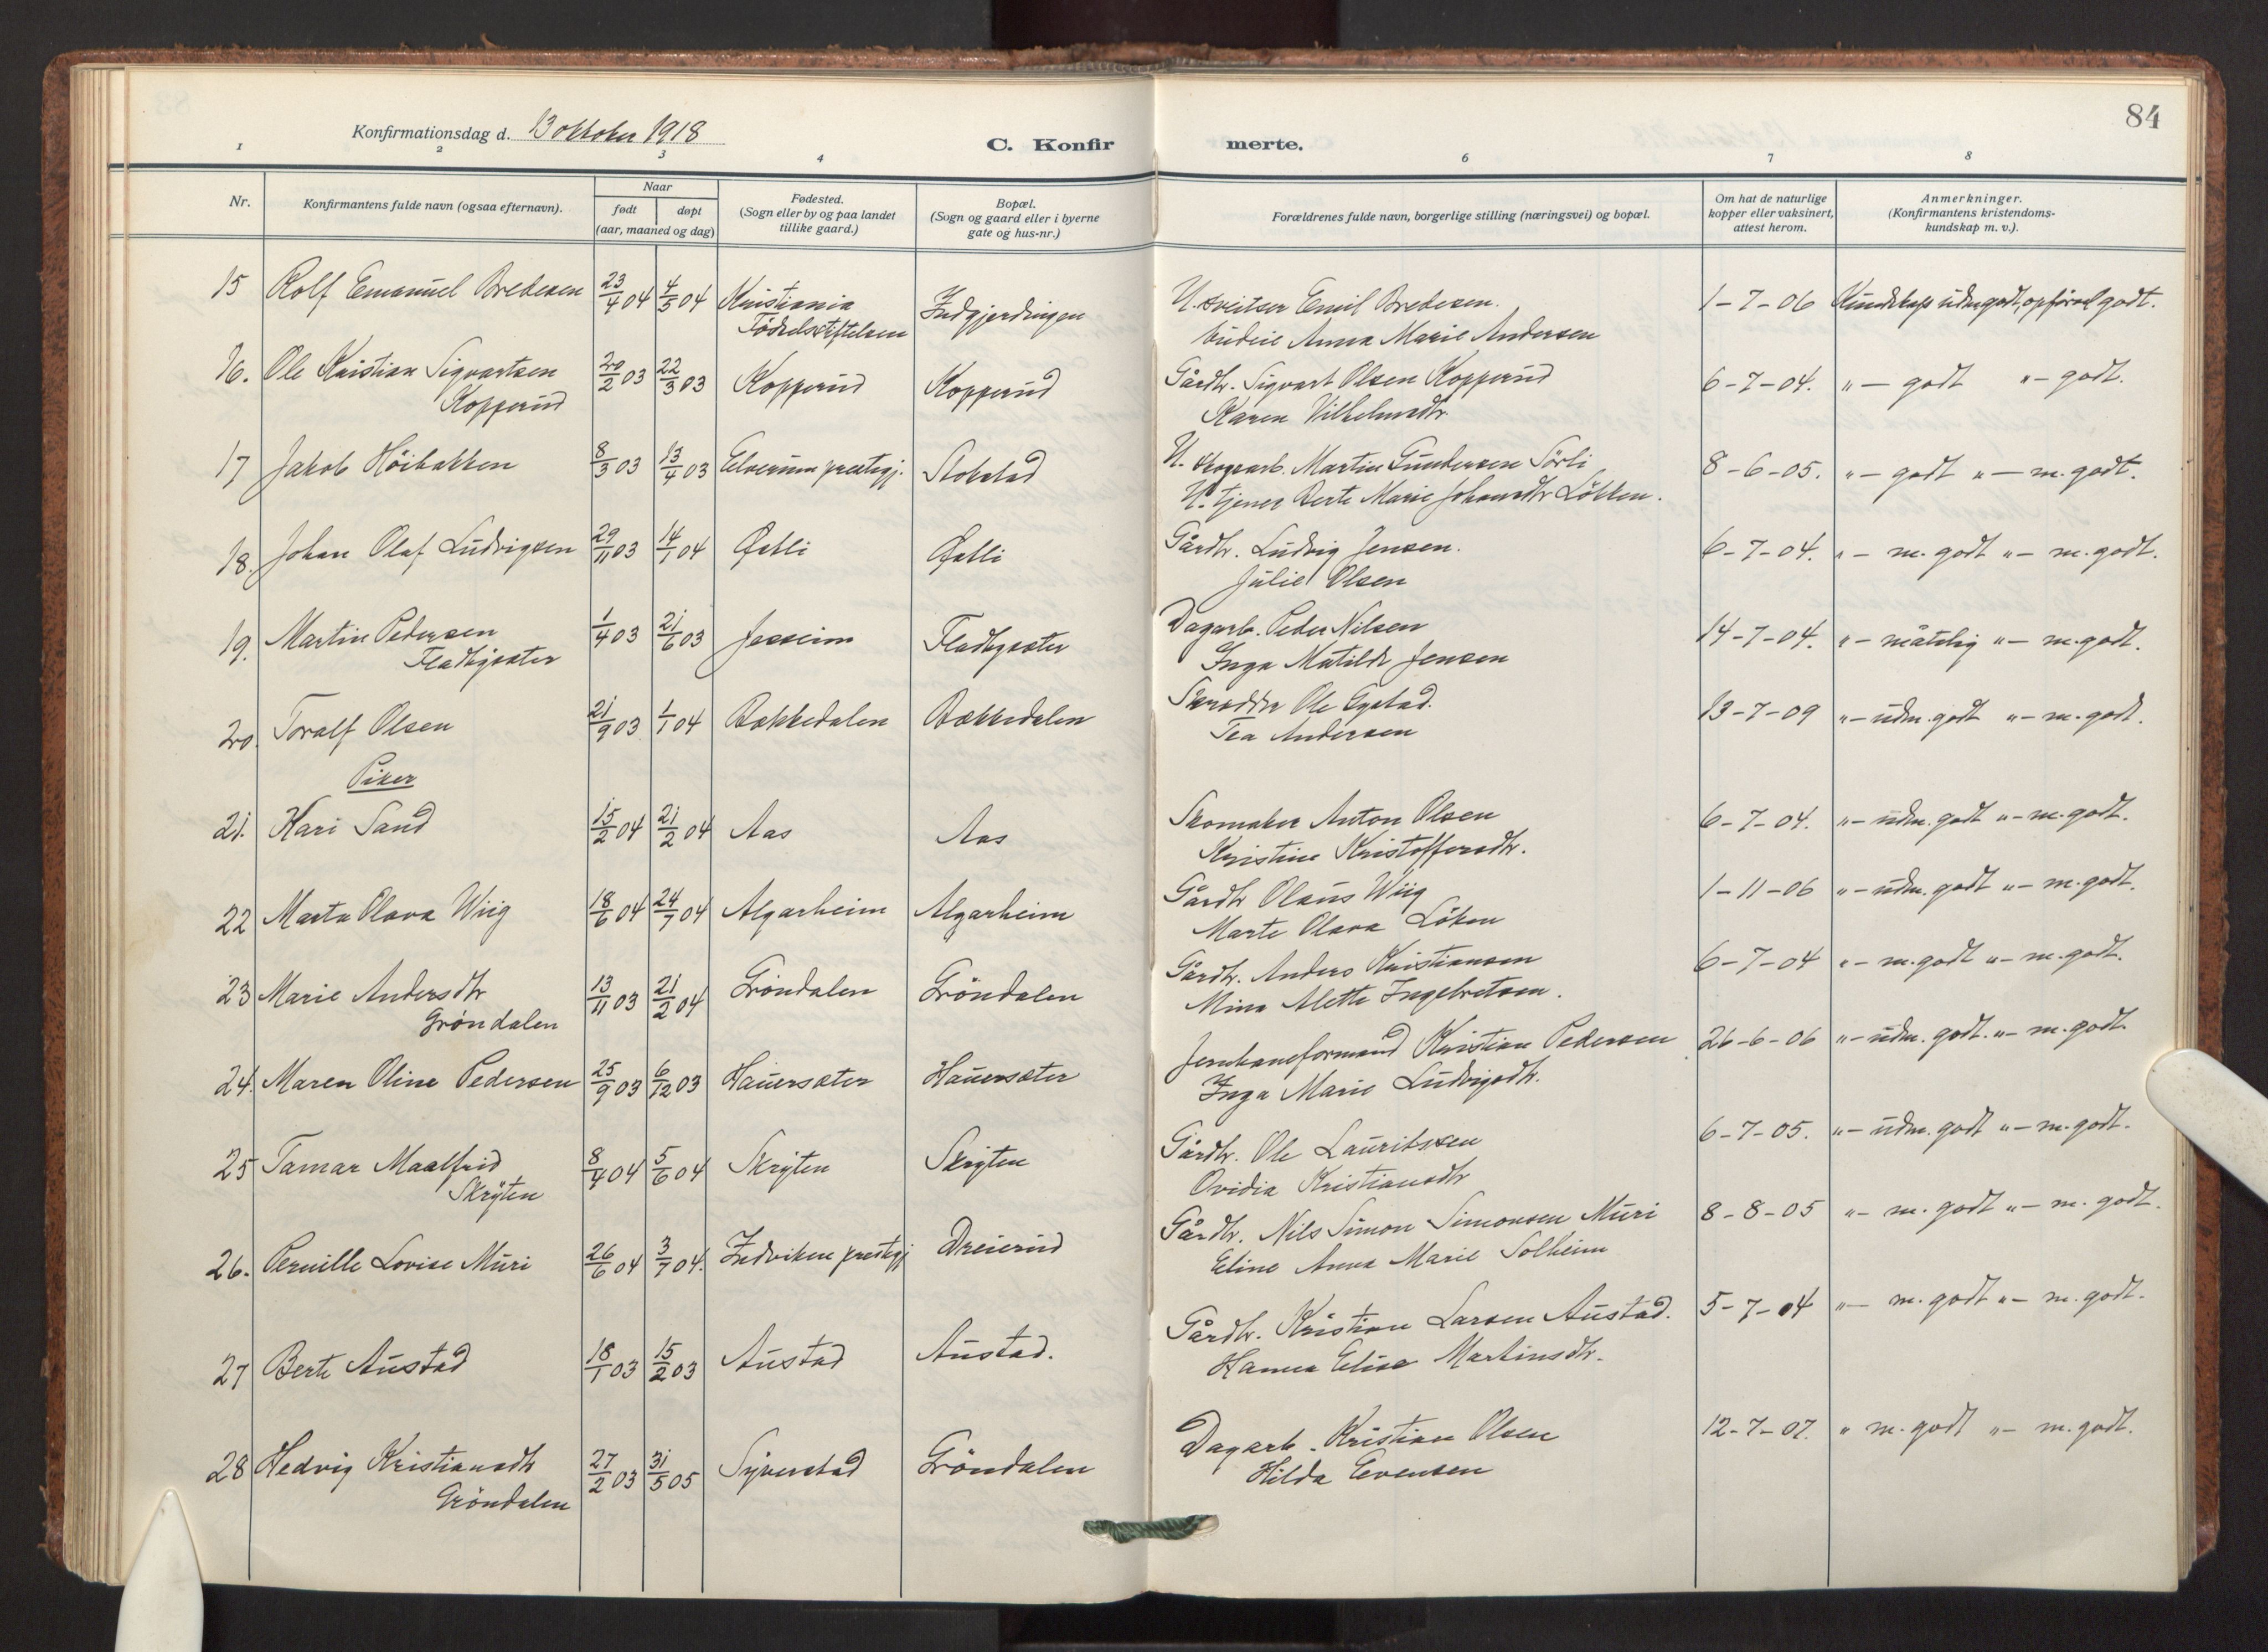 84
Konfirmationsdag d. 13 oktober 1918
C. Konfirmerte.
1 2 3 4 6 7 8
Nr.
Konfirmantens fulde navn (ogsaa efternavn).
Naar
født døpt
(aar, maaned og dag)
Fødested.
(Sogn eller by og paa landet
tillike gaard.)
Bopæl.
(Sogn og gaard eller i byerne
gate og hus-nr.)
Forældrenes fulde navn, borgerlige stilling (næringsvei) og bopæl.
Om hat de naturlige
kopper eller vaksinert,
attest herom.
Anmerkninger.
(Konfirmantens kristendoms-
kundskap m. v.).
15 Rolf Emanuel Bredesen 23/4 04 4/5 04 Kristiania Indgjerdingen U. sveitser Emil Bredesen. 1-7-06 Kundskap udm godt, opförsel godt.
Fødselsstiftelsen budeie Anna Marie Andersen
16. Ole Kristian Sigvartsen 20/2 03 22/3 03 Kopperud Kopperud Gårdbr. Sigvart Olsen Kopperud 6-7-04. "- godt "- godt.
Kopperud Karen Vilhelmsdtr
17 Jakob Höibakken 8/3 03 13/4 03 Elverum prestegj. Stokstad U. skogsarb. Martin Gundersen Sörli 8-6-05. "- godt "- m. godt.
U. tjener Berte Marie Johansdtr Lökken.
18. Johan Olaf Ludvigsen 29/11 03 14/1 04 Østli Østli Gårdbr. Ludvig Jensen. 6-7-04. "- m. godt "- m. godt.
Julie Olsen
19. Martin Pedersen 1/4 03 21/6 03 Jesseim Fladbysæter Dagarb. Peder Nilsen 14-7-04. "- måtelig "- m. godt.
Fladbysæter Inga Matilde Jensen
20. Toralf Olsen 21/9 03 1/1 04 Bækkedalen Bækkedalen Skrædder Ole Gystad. 13-7-09 "- udm. godt "- m. godt.
Tea Andersen
Piker
21. Kari Sand 15/2 04 21/2 04 Aas Aas Skomaker Anton Olsen 6-7-04. "- udm. godt "- m. godt.
Kristine Kristoffersdtr.
22 Marta Olava Wiig 18/6 04 24/7 04 Algarheim Algarheim Gårdbr Olaus Wiig 1-11-06 "- udm. godt "- m. godt.
Marte Olava Löken
23 Marie Andersdtr 13/11 03 21/2 04 Gröndalen Gröndalen Gårdbr. Anders Kristiansen 6-7-04 "- m. godt "- m. godt.
Gröndalen Mina Alette Ingebretsen.
24. Maren Oline Pedersen 25/9 03 6/12 03 Hauersæter Hauersæter Jernbaneformand Kristian Pedersen 26-6-06 "- udm. godt. "- m. godt.
Inga Marie Ludvigsdtr.
25 Tamar Maalfrid 8/4 04 5/6 04 Skryten Skryten Gårdbr. Ole Lauritssen 6-7-05. "- udm. godt "- m. godt.
Skryten Ovidia Kristiansdtr
26. Pernille Lovise Muri 26/6 04 3/7 04. Indviken prestegj Dreierud Gårdbr. Nils Simon Simonsen Muri 8-8-05 "- m. godt "- m. godt.
Eline Anna Marie Solheim
27 Berte Austad 18/1 03 15/2 03 Austad Austad. Gårdbr. Kristian Larsen Austad. 5-7-04 "- m. godt "- m. godt.
Hanna Elise Martinsdtr.
28 Hedvig Kristiansdtr 27/2 03 31/5 05 Syverstad Gröndalen Dagarb. Kristian Olsen 12-7-07. " m. godt "- m. godt.
Gröndalen Hilda Evensen